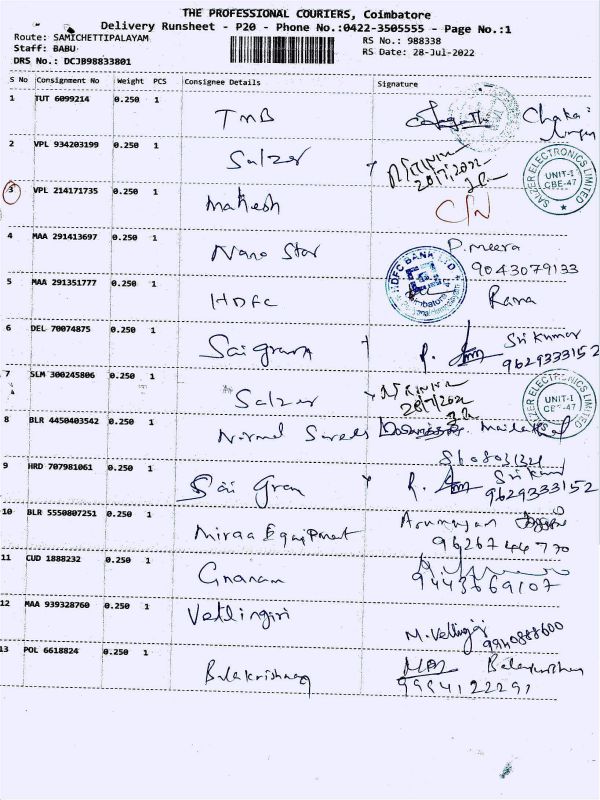 THE PROFESSIONAL COURIERS, Coimbatore
Delivery Runsheet - P20 - Phone No.:0422-3505555 - Page No.:1
Route: SAMICHETTIPALAYAM RS No.: 988338
Staff: BABU RS Date: 28-Jul-2022
DRS No.: DCJB98833801
S No Consignment No Weight PCS Consignee Details Signature
1 TUT 6099214 0.250 1 TMB
2 VPL 934203199 0.250 1 Salzer
SALZER ELECTRONICS LIMITED
UNIT-I
CBE-47
3 VPL 214171735 0.250 1 Mahesh C/N
4 MAA 291413697 0.250 1 Nano Star P. Meera
9043079133
5 MAA 291351777 0.250 1 HDFC Rama
HDFC BANK LTD
Coimbatore
6 DEL 70074875 0.250 1 Sri Kumar
9629333152
7 SLM 300245806 0.250 1 Salzer
28/7/2022
SALZER ELECTRONICS LIMITED
UNIT-I
CBE-47
8 BLR 4450403542 0.250 1 Nirmal
9 HRD 707981061 0.250 1 Sai
9629333152
10 BLR 5550807251 0.250 1 Miraa Equipment Arumugam
9626744770
11 CUD 1888232 0.250 1 Gnanam
9443669107
12 MAA 939328760 0.250 1 Vetlingiri
M. Vellingiri 9940888600
13 POL 6618824 0.250 1 Balakrishnan
9994122291